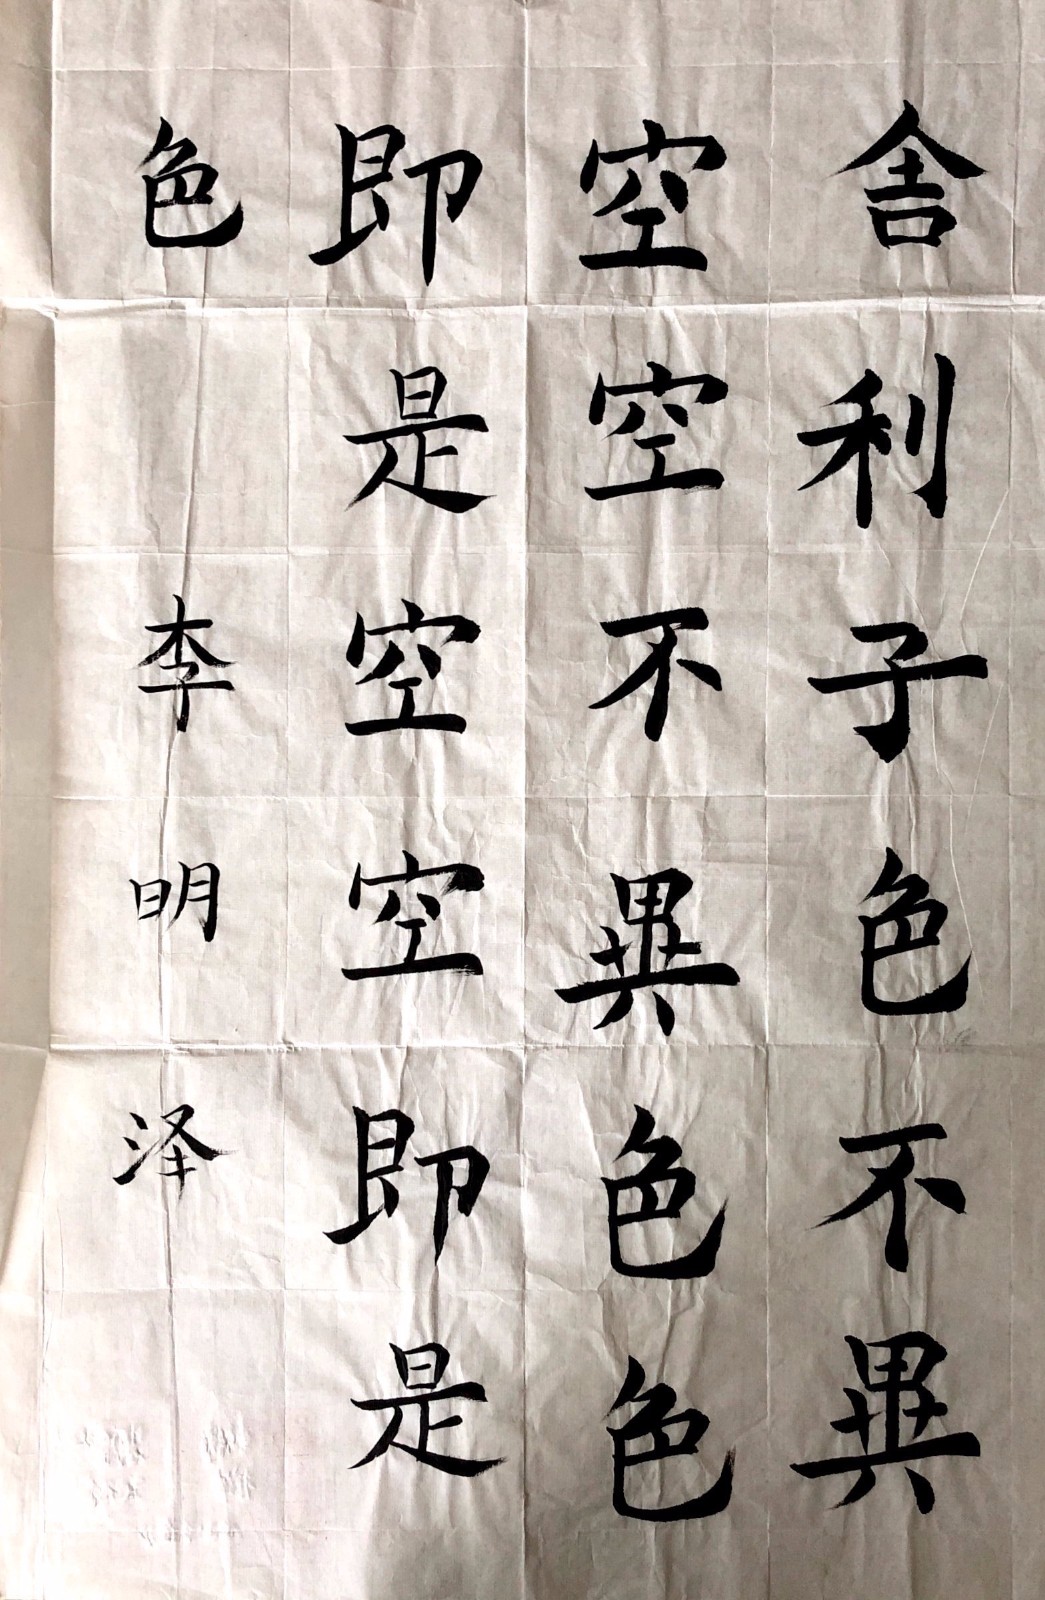 舍利子色不異
空空不異色色
即是空空即是
色
李明泽